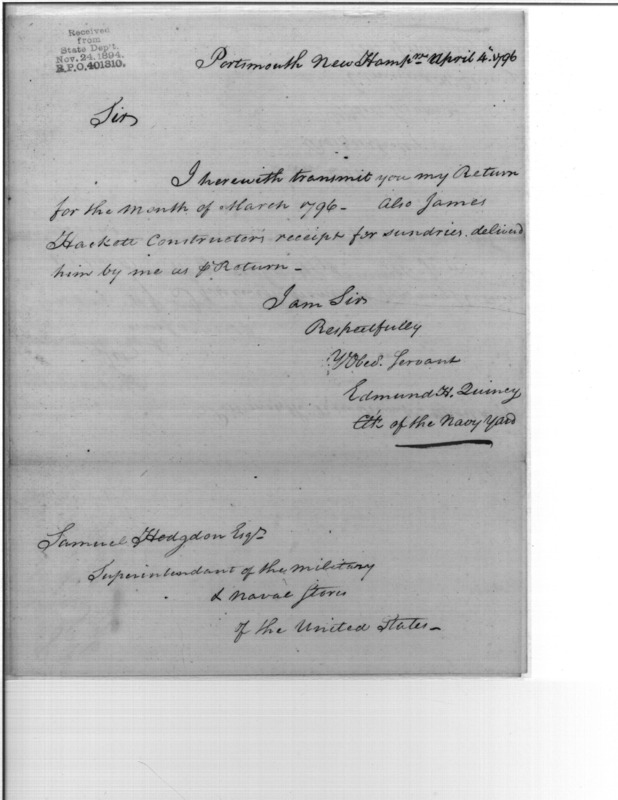 Received
from
State Dep't.
Nov. 24. 1894.
R.P.O. 401310.
Portsmouth New Hampre April 4th 1796
Sir
I herewith transmit you my Return
for the Month of March 1796 - Also James
Hackett Constructors receipt for sundries deliverd
him by me as pr Return -
I am Sir
Respectfully
Y Obed. Servant
Edmund H. Quincy
Clk of the Navy Yard
Samuel Hodgdon Esqr
Superintendant of the military
& Naval Stores
of the United States -